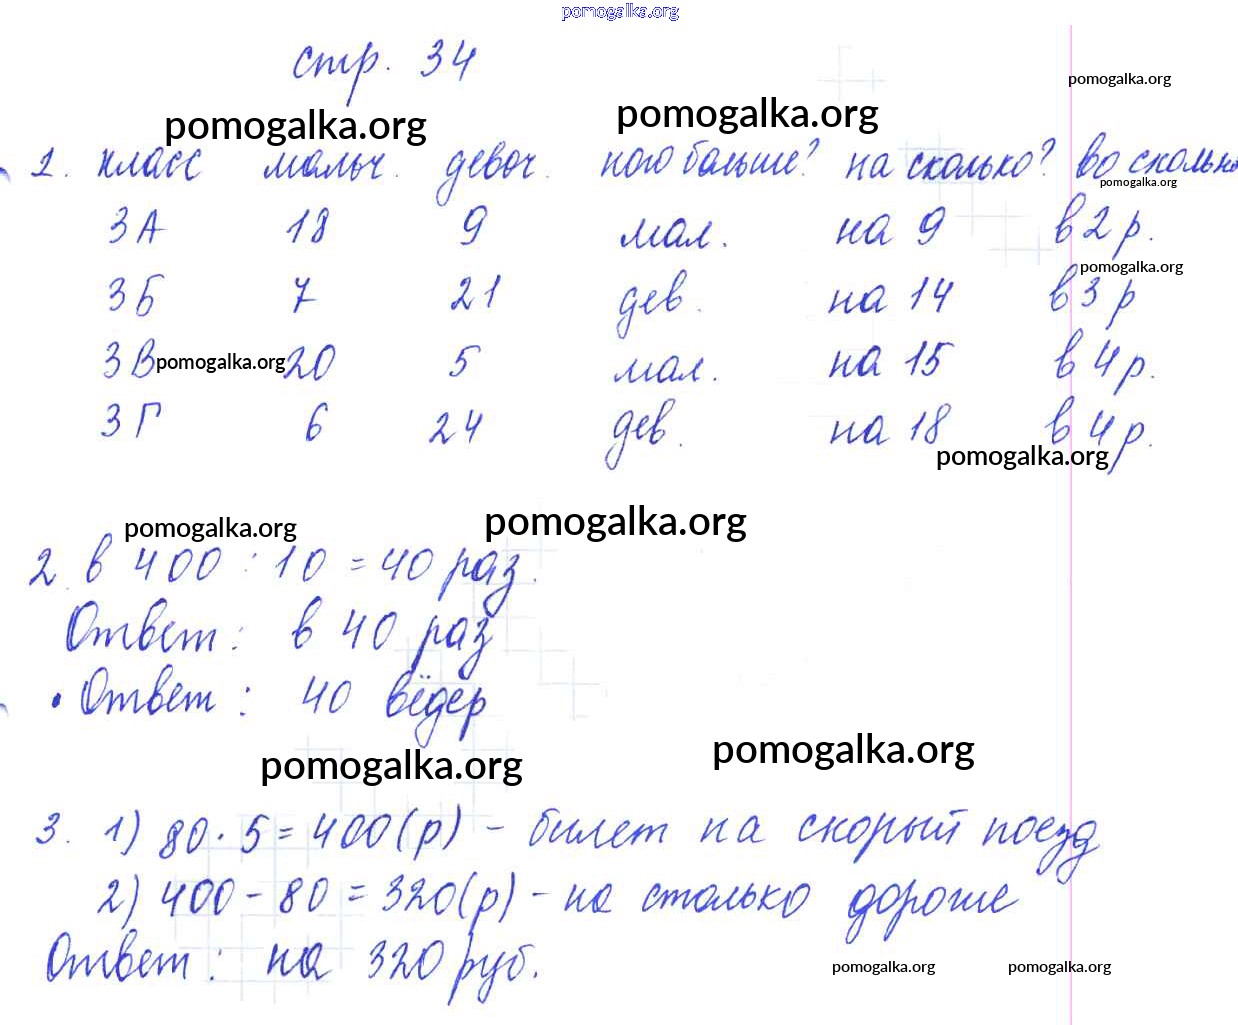 pomogalka.org
стр. 34
pomogalka.org
pomogalka.org pomogalka.org
1. класс мальч. девоч. кого больше? на сколько? во сколько
pomogalka.org
3А 18 9 мал. на 9 в 2 р.
pomogalka.org
3Б 7 21 дев. на 14 в 3 р
3В 20 5 мал. на 15 в 4 р.
pomogalka.org
3Г 6 24 дев. на 18 в 4 р.
pomogalka.org
pomogalka.org pomogalka.org
2. в 400 : 10 = 40 раз.
Ответ: в 40 раз
• Ответ: 40 вёдер
pomogalka.org pomogalka.org
3. 1) 80 · 5 = 400 (р) – билет на скорый поезд
2) 400 – 80 = 320 (р) – на столько дороже
Ответ: на 320 руб.
pomogalka.org pomogalka.org